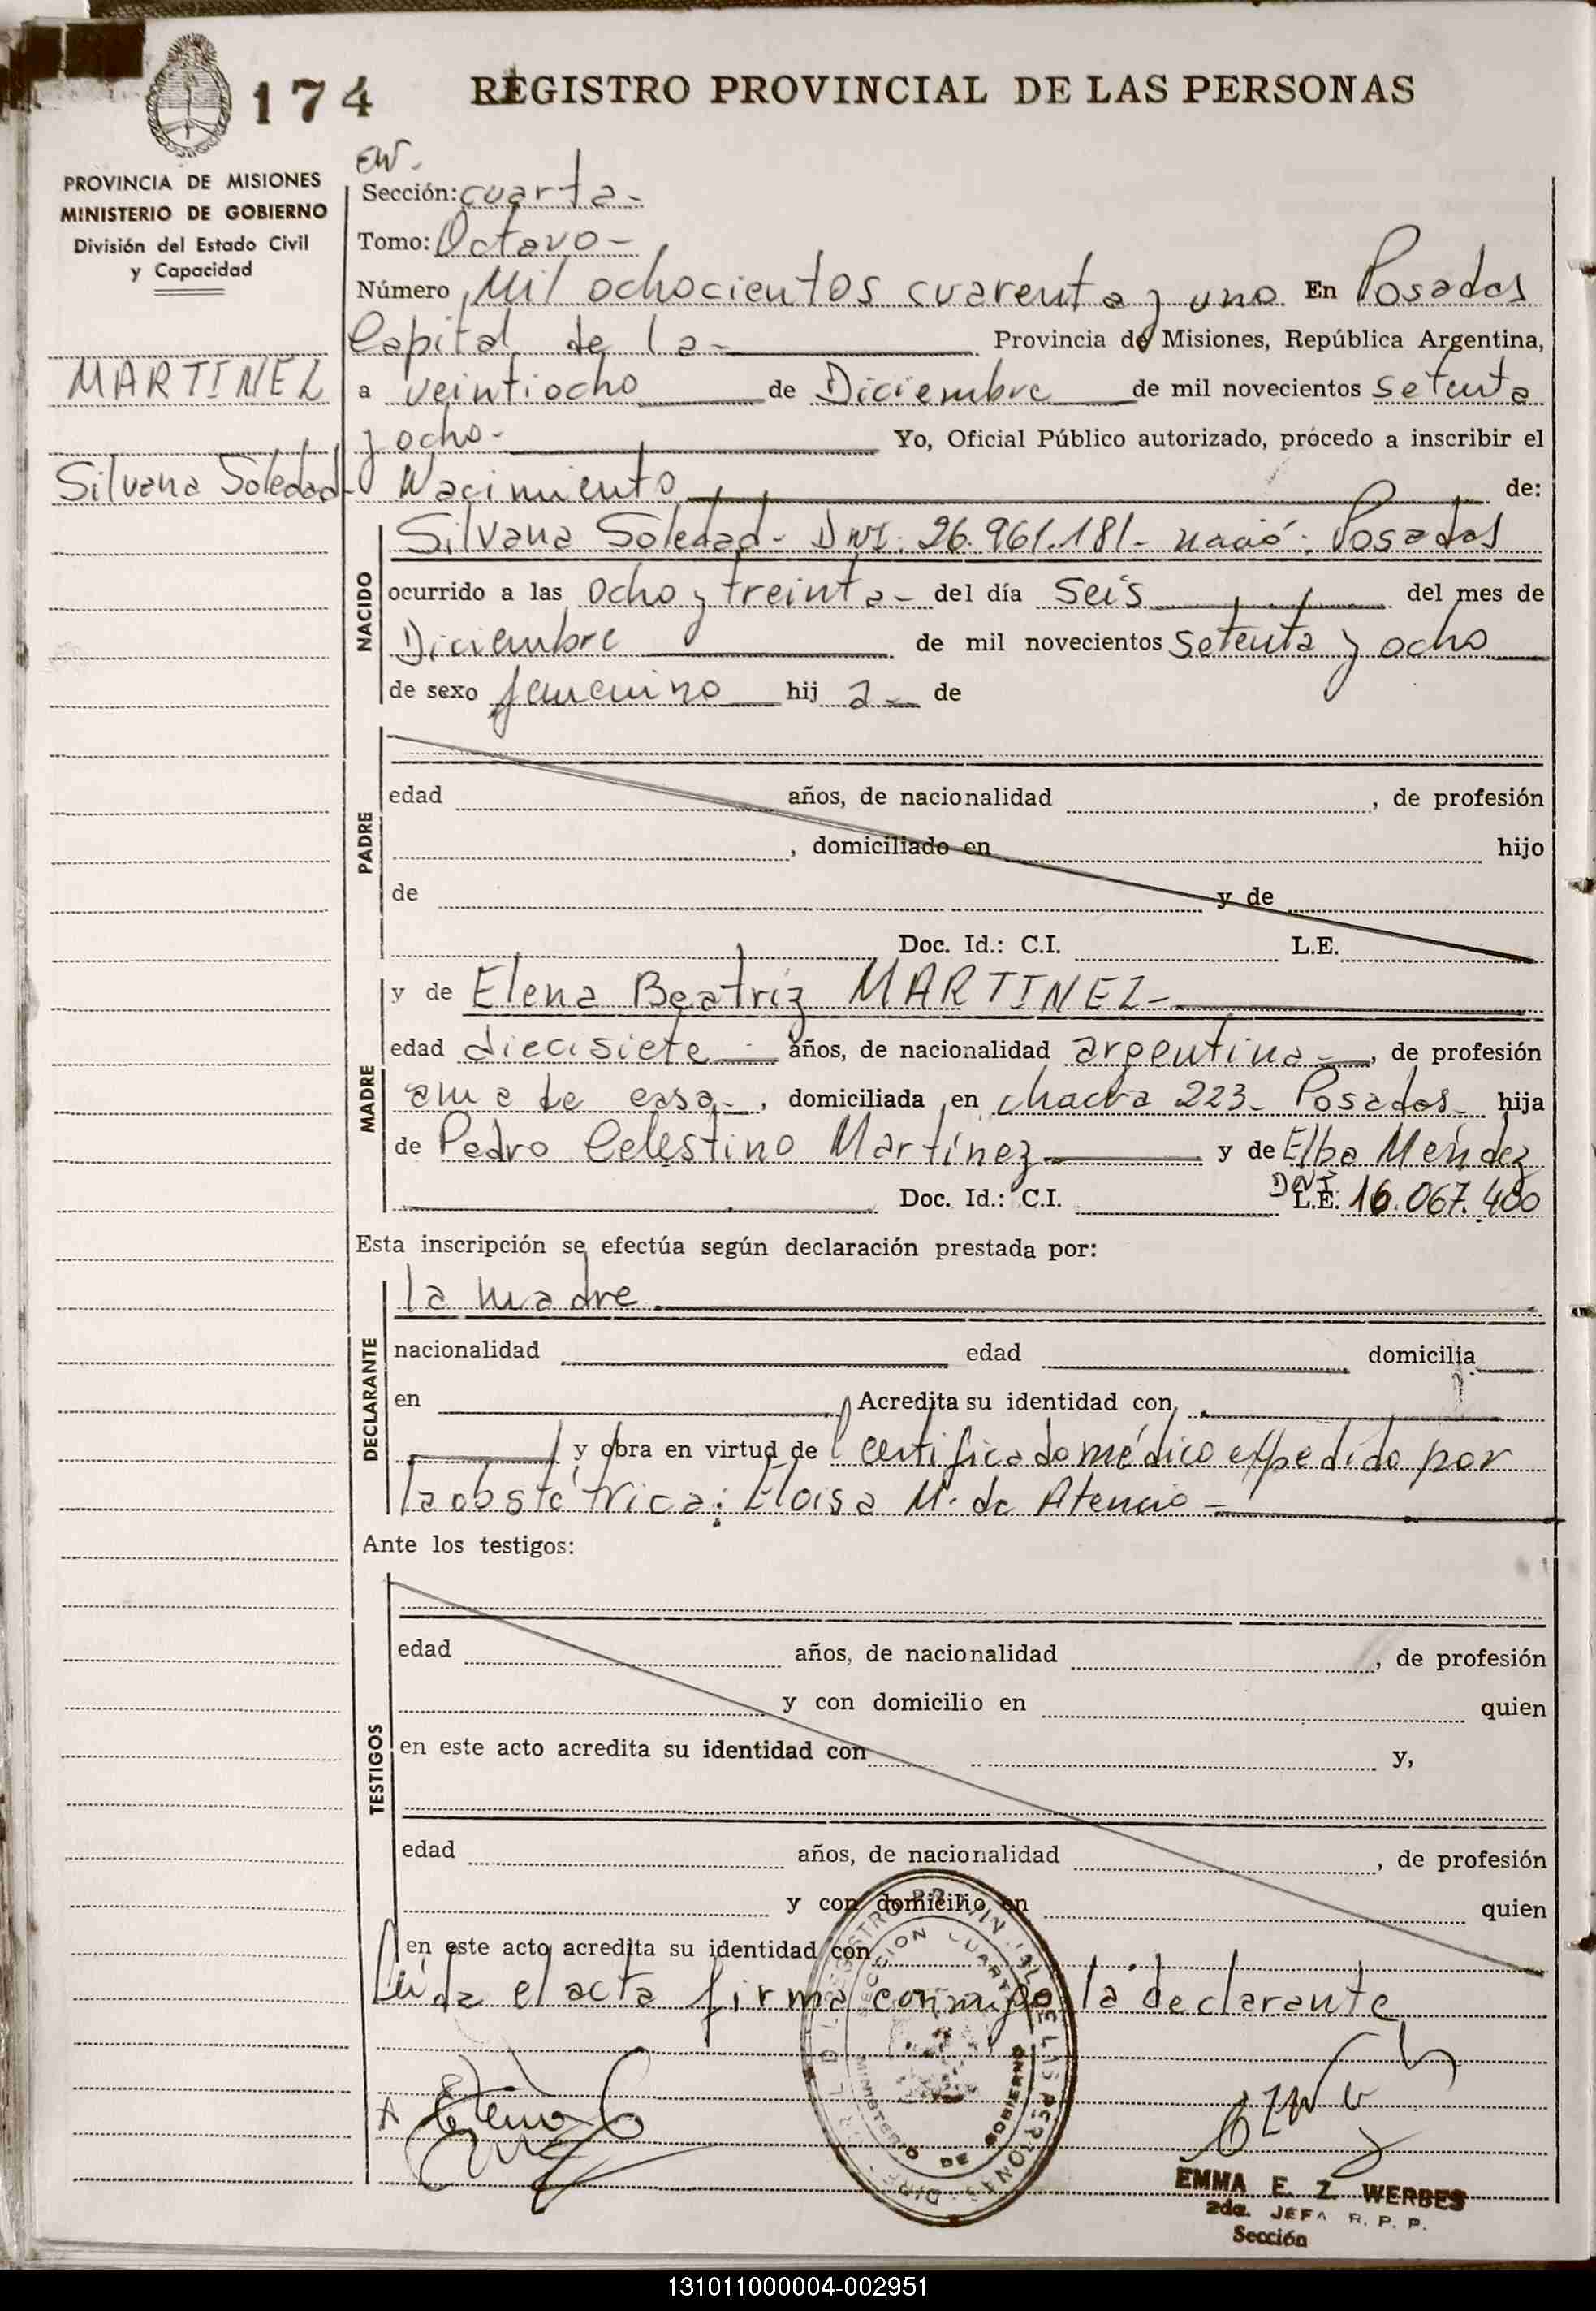 174 REGISTRO PROVINCIAL DE LAS PERSONAS
PROVINCIA DE MISIONES
MINISTERIO DE GOBIERNO
División del Estado Civil
y Capacidad
MARTINEZ
Silvana Soledad-
EW.
Sección: cuarta-
Tomo: Octavo-
Número Mil ochocientos cuarenta y uno En Posadas
Capital de la- Provincia de Misiones, República Argentina,
a veintiocho de Diciembre de mil novecientos setenta
y ocho- Yo, Oficial Público autorizado, procedo a inscribir el
Nacimiento de:
NACIDO
Silvana Soledad- DNI: 26.961.181- nació: Posadas
ocurrido a las ocho y treinta- del día seis del mes de
Diciembre de mil novecientos setenta y ocho
de sexo femenino hij a- de
PADRE
edad años, de nacionalidad , de profesión
, domiciliado en hijo
de y de
Doc. Id.: C.I. L.E.
MADRE
y de Elena Beatriz MARTINEZ-
edad diecisiete- años, de nacionalidad argentina-, de profesión
ama de casa-, domiciliada en chacra 223- Posadas- hija
de Pedro Celestino Martínez y de Elba Mendez
Doc. Id.: C.I. DNI L.E. 16.067.400
Esta inscripción se efectúa según declaración prestada por:
DECLARANTE
la madre
nacionalidad edad domicilia
en Acredita su identidad con
y obra en virtud del certificado médico expedido por
la obstétrica: Eloisa M. de Atencio-
Ante los testigos:
TESTIGOS
edad años, de nacionalidad , de profesión
y con domicilio en quien
en este acto acredita su identidad con y,
edad años, de nacionalidad , de profesión
y con domicilio en quien
en este acto acredita su identidad con
Leída el acta firma conmigo la declarante
SECCION CUARTA
MINISTERIO DE GOBIERNO
EMMA E. Z. WERBES
2da. JEFA R. P. P.
Sección
131011000004-002951